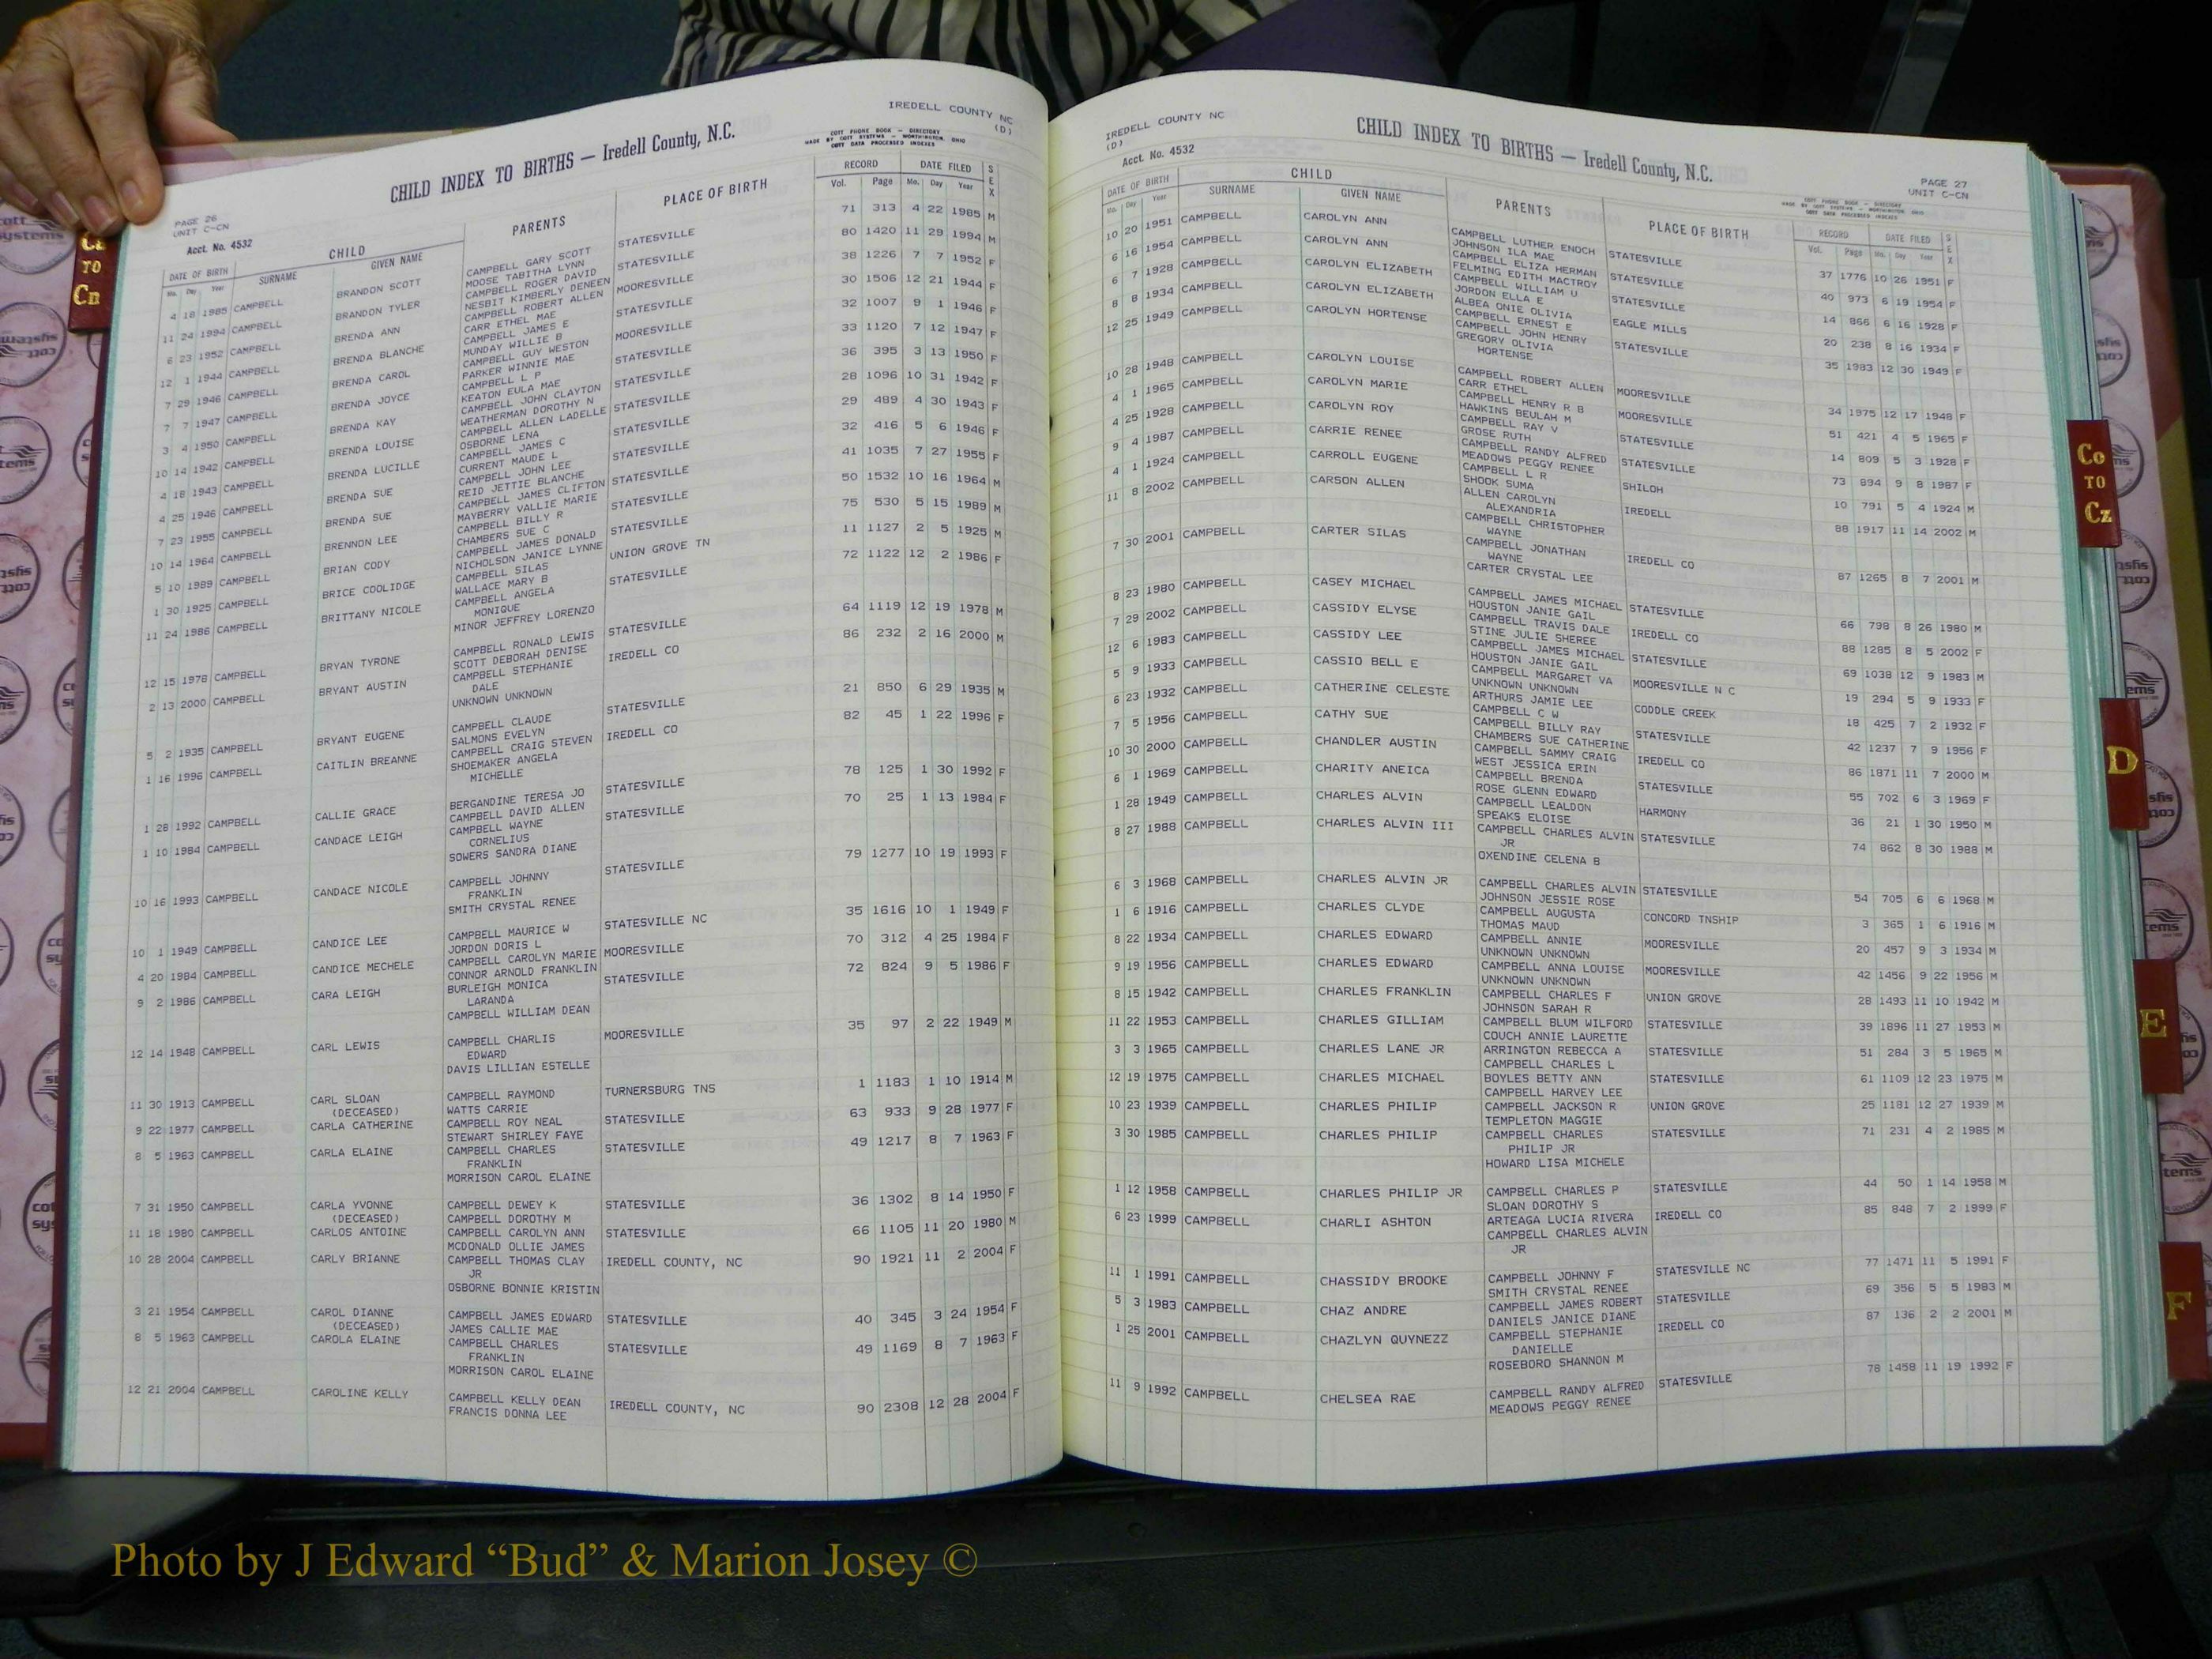 IREDELL COUNTY NC
(D)
CHILD INDEX TO BIRTHS — Iredell County, N.C.
COTT PHONE BOOK — DIRECTORY
MADE BY COTT SYSTEMS — WORTHINGTON, OHIO
COTT DATA PROCESSED INDEXES
PAGE 26
UNIT C-CN
Acct. No. 4532
DATE OF BIRTH CHILD PARENTS PLACE OF BIRTH RECORD DATE FILED SEX
Mo. Day Year SURNAME GIVEN NAME Vol. Page Mo. Day Year
4 18 1985 CAMPBELL BRANDON SCOTT CAMPBELL GARY SCOTT STATESVILLE 71 313 4 22 1985 M
MOOSE TABITHA LYNN
11 24 1994 CAMPBELL BRANDON TYLER CAMPBELL ROGER DAVID STATESVILLE 80 1420 11 29 1994 M
NESBIT KIMBERLY DENEEN
6 23 1952 CAMPBELL BRENDA ANN CAMPBELL ROBERT ALLEN MOORESVILLE 38 1226 7 7 1952 F
CARR ETHEL MAE
12 1 1944 CAMPBELL BRENDA BLANCHE CAMPBELL JAMES E STATESVILLE 30 1506 12 21 1944 F
MUNDAY WILLIE B
7 29 1946 CAMPBELL BRENDA CAROL CAMPBELL GUY WESTON MOORESVILLE 32 1007 9 1 1946 F
PARKER WINNIE MAE
7 7 1947 CAMPBELL BRENDA JOYCE CAMPBELL L P STATESVILLE 33 1120 7 12 1947 F
KEATON EULA MAE
3 4 1950 CAMPBELL BRENDA KAY CAMPBELL JOHN CLAYTON STATESVILLE 36 395 3 13 1950 F
WEATHERMAN DOROTHY N
10 14 1942 CAMPBELL BRENDA LOUISE CAMPBELL ALLEN LADELLE STATESVILLE 28 1096 10 31 1942 F
OSBORNE LENA
4 18 1943 CAMPBELL BRENDA LUCILLE CAMPBELL JAMES C STATESVILLE 29 489 4 30 1943 F
CURRENT MAUDE L
4 25 1946 CAMPBELL BRENDA SUE CAMPBELL JOHN LEE STATESVILLE 32 416 5 6 1946 F
REID JETTIE BLANCHE
7 23 1955 CAMPBELL BRENDA SUE CAMPBELL JAMES CLIFTON STATESVILLE 41 1035 7 27 1955 F
MAYBERRY VALLIE MARIE
10 14 1964 CAMPBELL BRENNON LEE CAMPBELL BILLY R STATESVILLE 50 1532 10 16 1964 M
CHAMBERS SUE C
5 10 1989 CAMPBELL BRIAN CODY CAMPBELL JAMES DONALD STATESVILLE 75 530 5 15 1989 M
NICHOLSON JANICE LYNNE
1 30 1925 CAMPBELL BRICE COOLIDGE CAMPBELL SILAS UNION GROVE TN 11 1127 2 5 1925 M
WALLACE MARY B
11 24 1986 CAMPBELL BRITTANY NICOLE CAMPBELL ANGELA STATESVILLE 72 1122 12 2 1986 F
MONIQUE
MINOR JEFFREY LORENZO
12 15 1978 CAMPBELL BRYAN TYRONE CAMPBELL RONALD LEWIS STATESVILLE 64 1119 12 19 1978 M
SCOTT DEBORAH DENISE
2 13 2000 CAMPBELL BRYANT AUSTIN CAMPBELL STEPHANIE IREDELL CO 86 232 2 16 2000 M
DALE
UNKNOWN UNKNOWN
5 2 1935 CAMPBELL BRYANT EUGENE CAMPBELL CLAUDE STATESVILLE 21 850 6 29 1935 M
SALMONS EVELYN
1 16 1996 CAMPBELL CAITLIN BREANNE CAMPBELL CRAIG STEVEN IREDELL CO 82 45 1 22 1996 F
SHOEMAKER ANGELA
MICHELLE
1 28 1992 CAMPBELL CALLIE GRACE BERGANDINE TERESA JO STATESVILLE 78 125 1 30 1992 F
CAMPBELL DAVID ALLEN
1 10 1984 CAMPBELL CANDACE LEIGH CAMPBELL WAYNE STATESVILLE 70 25 1 13 1984 F
CORNELIUS
SOWERS SANDRA DIANE
10 16 1993 CAMPBELL CANDACE NICOLE CAMPBELL JOHNNY STATESVILLE 79 1277 10 19 1993 F
FRANKLIN
SMITH CRYSTAL RENEE
10 1 1949 CAMPBELL CANDICE LEE CAMPBELL MAURICE W STATESVILLE NC 35 1616 10 1 1949 F
JORDON DORIS L
4 20 1984 CAMPBELL CANDICE MECHELE CAMPBELL CAROLYN MARIE MOORESVILLE 70 312 4 25 1984 F
CONNOR ARNOLD FRANKLIN
9 2 1986 CAMPBELL CARA LEIGH BURLEIGH MONICA STATESVILLE 72 824 9 5 1986 F
LARANDA
CAMPBELL WILLIAM DEAN
12 14 1948 CAMPBELL CARL LEWIS CAMPBELL CHARLIS MOORESVILLE 35 97 2 22 1949 M
EDWARD
DAVIS LILLIAN ESTELLE
11 30 1913 CAMPBELL CARL SLOAN CAMPBELL RAYMOND TURNERSBURG TNS 1 1183 1 10 1914 M
(DECEASED) WATTS CARRIE
9 22 1977 CAMPBELL CARLA CATHERINE CAMPBELL ROY NEAL STATESVILLE 63 933 9 28 1977 F
STEWART SHIRLEY FAYE
8 5 1963 CAMPBELL CARLA ELAINE CAMPBELL CHARLES STATESVILLE 49 1217 8 7 1963 F
FRANKLIN
MORRISON CAROL ELAINE
7 31 1950 CAMPBELL CARLA YVONNE CAMPBELL DEWEY K STATESVILLE 36 1302 8 14 1950 F
(DECEASED) CAMPBELL DOROTHY M
11 18 1980 CAMPBELL CARLOS ANTOINE CAMPBELL CAROLYN ANN STATESVILLE 66 1105 11 20 1980 M
MCDONALD OLLIE JAMES
10 28 2004 CAMPBELL CARLY BRIANNE CAMPBELL THOMAS CLAY IREDELL COUNTY, NC 90 1921 11 2 2004 F
JR
OSBORNE BONNIE KRISTIN
3 21 1954 CAMPBELL CAROL DIANNE CAMPBELL JAMES EDWARD STATESVILLE 40 345 3 24 1954 F
(DECEASED) JAMES CALLIE MAE
8 5 1963 CAMPBELL CAROLA ELAINE CAMPBELL CHARLES STATESVILLE 49 1169 8 7 1963 F
FRANKLIN
MORRISON CAROL ELAINE
12 21 2004 CAMPBELL CAROLINE KELLY CAMPBELL KELLY DEAN IREDELL COUNTY, NC 90 2308 12 28 2004 F
FRANCIS DONNA LEE
IREDELL COUNTY NC
(D)
Acct. No. 4532
CHILD INDEX TO BIRTHS — Iredell County, N.C.
PAGE 27
UNIT C-CN
COTT PHONE BOOK — DIRECTORY
MADE BY COTT SYSTEMS — WORTHINGTON, OHIO
COTT DATA PROCESSED INDEXES
DATE OF BIRTH CHILD PARENTS PLACE OF BIRTH RECORD DATE FILED SEX
Mo. Day Year SURNAME GIVEN NAME Vol. Page Mo. Day Year
10 20 1951 CAMPBELL CAROLYN ANN CAMPBELL LUTHER ENOCH STATESVILLE 37 1776 10 26 1951 F
JOHNSON ILA MAE
6 16 1954 CAMPBELL CAROLYN ANN CAMPBELL ELIZA HERMAN STATESVILLE 40 973 6 19 1954 F
FELMING EDITH MACTROY
6 7 1928 CAMPBELL CAROLYN ELIZABETH CAMPBELL WILLIAM U STATESVILLE 14 866 6 16 1928 F
JORDON ELLA E
8 8 1934 CAMPBELL CAROLYN ELIZABETH ALBEA ONIE OLIVIA EAGLE MILLS 20 238 8 16 1934 F
CAMPBELL ERNEST E
12 25 1949 CAMPBELL CAROLYN HORTENSE CAMPBELL JOHN HENRY STATESVILLE 35 1983 12 30 1949 F
GREGORY OLIVIA
HORTENSE
10 28 1948 CAMPBELL CAROLYN LOUISE CAMPBELL ROBERT ALLEN MOORESVILLE 34 1975 12 17 1948 F
CARR ETHEL
4 1 1965 CAMPBELL CAROLYN MARIE CAMPBELL HENRY R B MOORESVILLE 51 421 4 5 1965 F
HAWKINS BEULAH M
4 25 1928 CAMPBELL CAROLYN ROY CAMPBELL RAY V STATESVILLE 14 809 5 3 1928 F
GROSE RUTH
9 4 1987 CAMPBELL CARRIE RENEE CAMPBELL RANDY ALFRED STATESVILLE 73 894 9 8 1987 F
MEADOWS PEGGY RENEE
4 1 1924 CAMPBELL CARROLL EUGENE CAMPBELL L R SHILOH 10 791 5 4 1924 M
SHOOK SUMA
11 8 2002 CAMPBELL CARSON ALLEN ALLEN CAROLYN IREDELL 88 1917 11 14 2002 M
ALEXANDRIA
CAMPBELL CHRISTOPHER
WAYNE
7 30 2001 CAMPBELL CARTER SILAS CAMPBELL JONATHAN IREDELL CO 87 1265 8 7 2001 M
WAYNE
CARTER CRYSTAL LEE
8 23 1980 CAMPBELL CASEY MICHAEL CAMPBELL JAMES MICHAEL STATESVILLE 66 798 8 26 1980 M
HOUSTON JANIE GAIL
7 29 2002 CAMPBELL CASSIDY ELYSE CAMPBELL TRAVIS DALE IREDELL CO 88 1285 8 5 2002 F
STINE JULIE SHEREE
12 6 1983 CAMPBELL CASSIDY LEE CAMPBELL JAMES MICHAEL STATESVILLE 69 1038 12 9 1983 M
HOUSTON JANIE GAIL
5 9 1933 CAMPBELL CASSIO BELL E CAMPBELL MARGARET VA MOORESVILLE N C 19 294 5 9 1933 F
UNKNOWN UNKNOWN
6 23 1932 CAMPBELL CATHERINE CELESTE ARTHURS JAMIE LEE CODDLE CREEK 18 425 7 2 1932 F
CAMPBELL C W
7 5 1956 CAMPBELL CATHY SUE CAMPBELL BILLY RAY STATESVILLE 42 1237 7 9 1956 F
CHAMBERS SUE CATHERINE
10 30 2000 CAMPBELL CHANDLER AUSTIN CAMPBELL SAMMY CRAIG IREDELL CO 86 1871 11 7 2000 M
WEST JESSICA ERIN
6 1 1969 CAMPBELL CHARITY ANEICA CAMPBELL BRENDA STATESVILLE 55 702 6 3 1969 F
ROSE GLENN EDWARD
1 28 1949 CAMPBELL CHARLES ALVIN CAMPBELL LEALDON HARMONY 36 21 1 30 1950 M
SPEAKS ELOISE
8 27 1988 CAMPBELL CHARLES ALVIN III CAMPBELL CHARLES ALVIN STATESVILLE 74 862 8 30 1988 M
JR
OXENDINE CELENA B
6 3 1968 CAMPBELL CHARLES ALVIN JR CAMPBELL CHARLES ALVIN STATESVILLE 54 705 6 6 1968 M
JOHNSON JESSIE ROSE
1 6 1916 CAMPBELL CHARLES CLYDE CAMPBELL AUGUSTA CONCORD TNSHIP 3 365 1 6 1916 M
THOMAS MAUD
8 22 1934 CAMPBELL CHARLES EDWARD CAMPBELL ANNIE MOORESVILLE 20 457 9 3 1934 M
UNKNOWN UNKNOWN
9 19 1956 CAMPBELL CHARLES EDWARD CAMPBELL ANNA LOUISE MOORESVILLE 42 1456 9 22 1956 M
UNKNOWN UNKNOWN
8 15 1942 CAMPBELL CHARLES FRANKLIN CAMPBELL CHARLES F UNION GROVE 28 1493 11 10 1942 M
JOHNSON SARAH R
11 22 1953 CAMPBELL CHARLES GILLIAM CAMPBELL BLUM WILFORD STATESVILLE 39 1896 11 27 1953 M
COUCH ANNIE LAURETTE
3 3 1965 CAMPBELL CHARLES LANE JR ARRINGTON REBECCA A STATESVILLE 51 284 3 5 1965 M
CAMPBELL CHARLES L
12 19 1975 CAMPBELL CHARLES MICHAEL BOYLES BETTY ANN STATESVILLE 61 1109 12 23 1975 M
CAMPBELL HARVEY LEE
10 23 1939 CAMPBELL CHARLES PHILIP CAMPBELL JACKSON R UNION GROVE 25 1181 12 27 1939 M
TEMPLETON MAGGIE
3 30 1985 CAMPBELL CHARLES PHILIP CAMPBELL CHARLES STATESVILLE 71 231 4 2 1985 M
PHILIP JR
HOWARD LISA MICHELE
1 12 1958 CAMPBELL CHARLES PHILIP JR CAMPBELL CHARLES P STATESVILLE 44 50 1 14 1958 M
SLOAN DOROTHY S
6 23 1999 CAMPBELL CHARLI ASHTON ARTEAGA LUCIA RIVERA IREDELL CO 85 848 7 2 1999 F
CAMPBELL CHARLES ALVIN
JR
11 1 1991 CAMPBELL CHASSIDY BROOKE CAMPBELL JOHNNY F STATESVILLE NC 77 1471 11 5 1991 F
SMITH CRYSTAL RENEE
5 3 1983 CAMPBELL CHAZ ANDRE CAMPBELL JAMES ROBERT STATESVILLE 69 356 5 5 1983 M
DANIELS JANICE DIANE
1 25 2001 CAMPBELL CHAZLYN QUYNEZZ CAMPBELL STEPHANIE IREDELL CO 87 136 2 2 2001 M
DANIELLE
ROSEBORO SHANNON M
11 9 1992 CAMPBELL CHELSEA RAE CAMPBELL RANDY ALFRED STATESVILLE 78 1458 11 19 1992 F
MEADOWS PEGGY RENEE
TO
Cn
Co
TO
Cz
D
E
F
Photo by J Edward “Bud” & Marion Josey ©